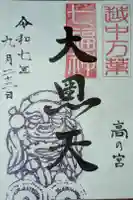 越中万葉
七福神
高の宮
大黒天
令和七年
九月二十二日